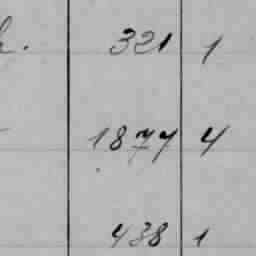 h. 321 1
1877 4
438 1